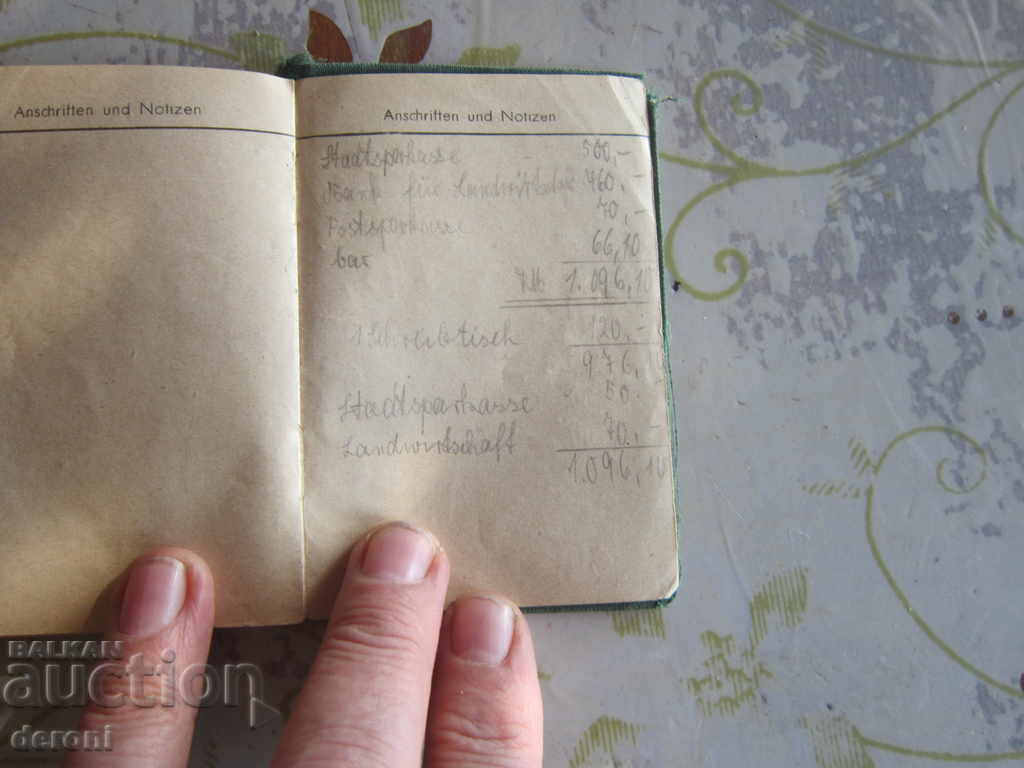 Anschriften und Notizen
Anschriften und Notizen
Stadtsparkasse 500,-
Bank für Landwirtschaft 460,-
Postsparkasse 70,-
bar 66,10
RM 1.096,10
1 Schreibtisch 120.-
976,
Stadtsparkasse 50.
Landwirtschaft 70.-
1.096,10
BALKAN
auction
deroni